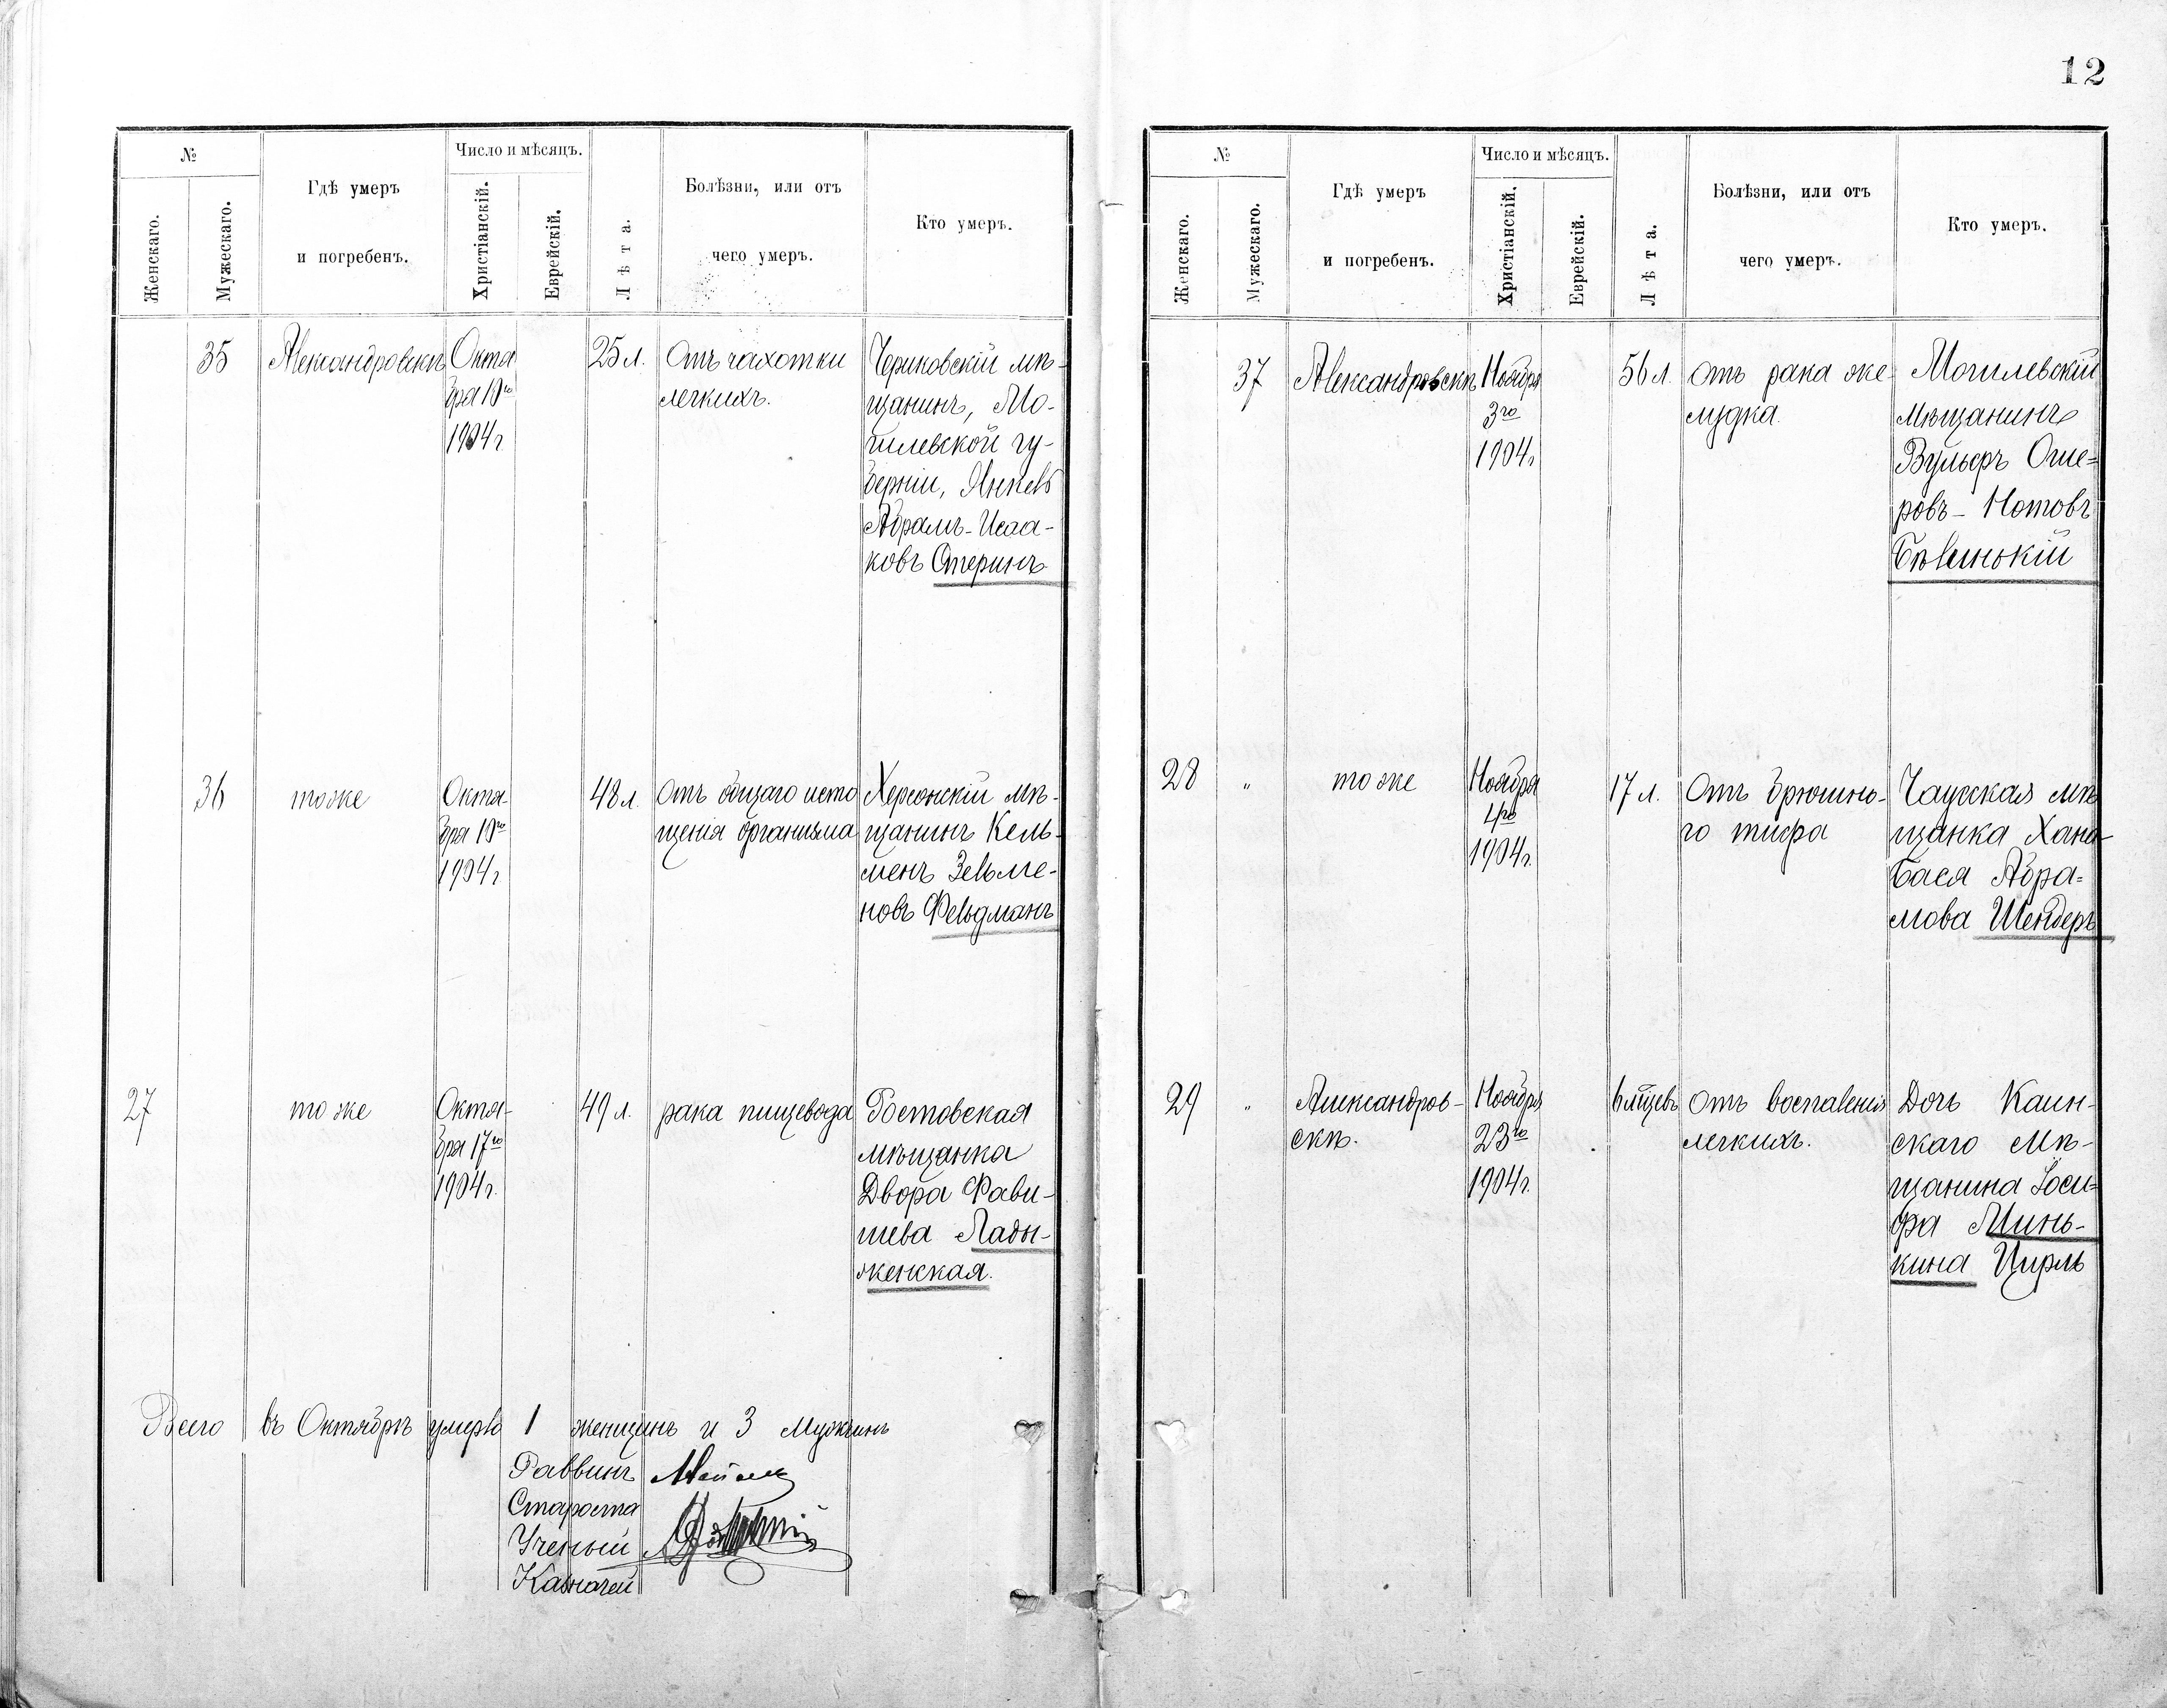 12
№
Женскаго.
Мужескаго.
Гдѣ умеръ
и погребенъ.
Число и мѣсяцъ.
Христіанскій.
Еврейскій.
Лѣта.
Болѣзни, или отъ
чего умеръ.
Кто умеръ.
35
Александровскъ
Октя-
бря 10го
1904 г.
25 л.
Отъ чахотки
легкихъ.
Чериковскій мѣ-
щанинъ, Мо-
гилевской гу-
берніи, Янкель
Абрамъ-Исаа-
ковъ Стеринъ
36
тоже
Октя-
бря 10го
1904 г
48 л.
Отъ общаго исто
щенія организма
Херсонскій мѣ-
щанинъ Кель-
менъ Зельме-
новъ Фельдманъ
27
тоже
Октя-
бря 17го
1904 г.
49 л.
рака пищевода
Ростовская
мѣщанка
Двора Фави-
шева Лады-
женская.
Всего въ Октябрѣ умерло 1 женщинъ и 3 Мужчинъ
Раввинъ
Староста
Ученый
Казначей
№
Женскаго.
Мужескаго.
Гдѣ умеръ
и погребенъ.
Число и мѣсяцъ.
Христіанскій.
Еврейскій.
Лѣта.
Болѣзни, или отъ
чего умеръ.
Кто умеръ.
37
Александровскъ
Ноября
3го
1904 г
56 л.
Отъ рака же-
лудка.
Могилевскій
Мѣщанинъ
Вульфъ Оше-
ровъ-Нотовъ
Бѣленькій
28
"
тоже
Ноября
4го
1904 г.
17 л.
Отъ брюшно-
го тифа
Чаусская мѣ
щанка Хана-
Бася Абра-
мова Шендеръ
29
"
Александров-
скъ.
Ноября
23го
1904 г.
6 мѣсцевъ
Отъ воспаленія
легкихъ.
Дочь Каин-
скаго Мѣ-
щанина Іоси-
фа Минь-
кина Цирль